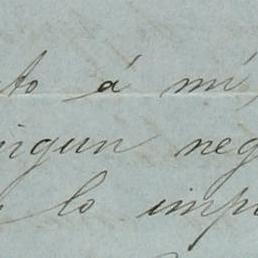 to á mí,
ningun neg
lo impo